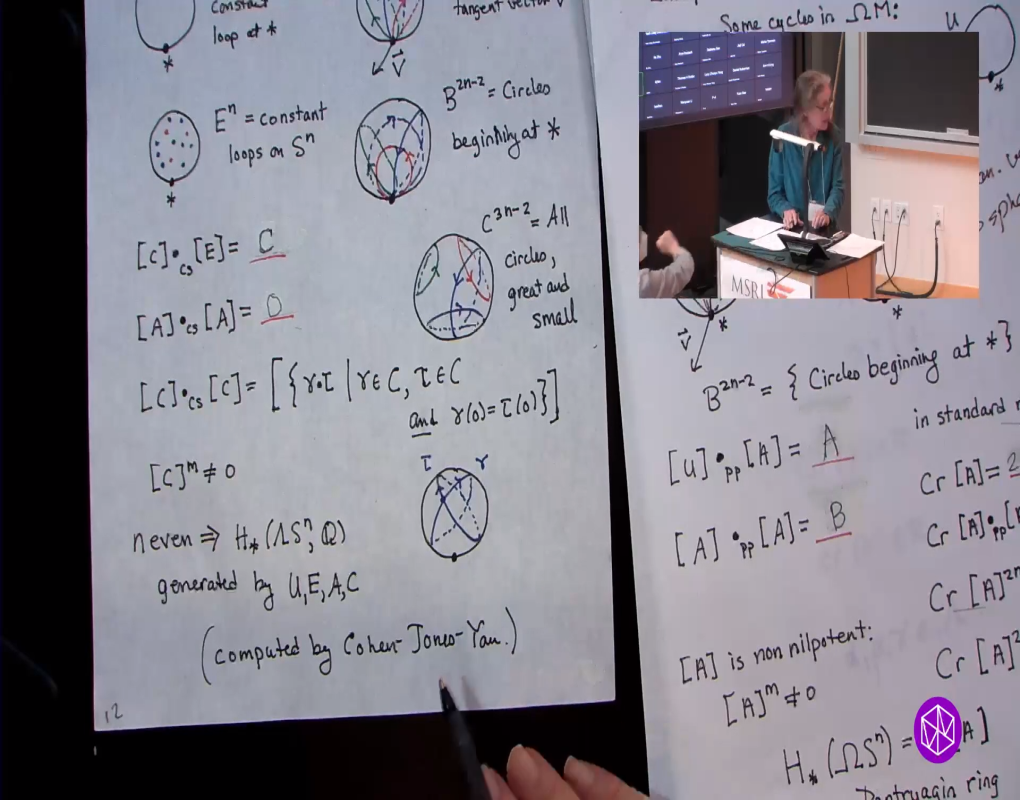 constant
loop at *
*
tangent vector V
V
Eⁿ = constant
loops on Sⁿ
*
B²ⁿ⁻² = Circles
beginning at *
C³ⁿ⁻² = All
circles,
great and
small
[C]•cs [E] = C
[A]•cs [A] = 0
[C]•cs [C] = [{γ•τ | γ∈C, τ∈C
and γ(0)=τ(0)}]
τ γ
[C]ᵐ ≠ 0
n even ⇒ H*(ΛSⁿ; Q)
generated by U, E, A, C
(computed by Cohen-Jones-Yan.)
12
Some cycles in ΩM:
U
*
MSRI
V
*
*
B²ⁿ⁻² = { Circles beginning at * }
in standard
[U] •pp [A] = A
[A] •pp [A] = B
Cr [A] = 2
Cr [A] •pp [
Cr [A]²ⁿ
Cr [A]²
[A] is non nilpotent:
[A]ᵐ ≠ 0
H* (ΩSⁿ) = A]
Pontryagin ring